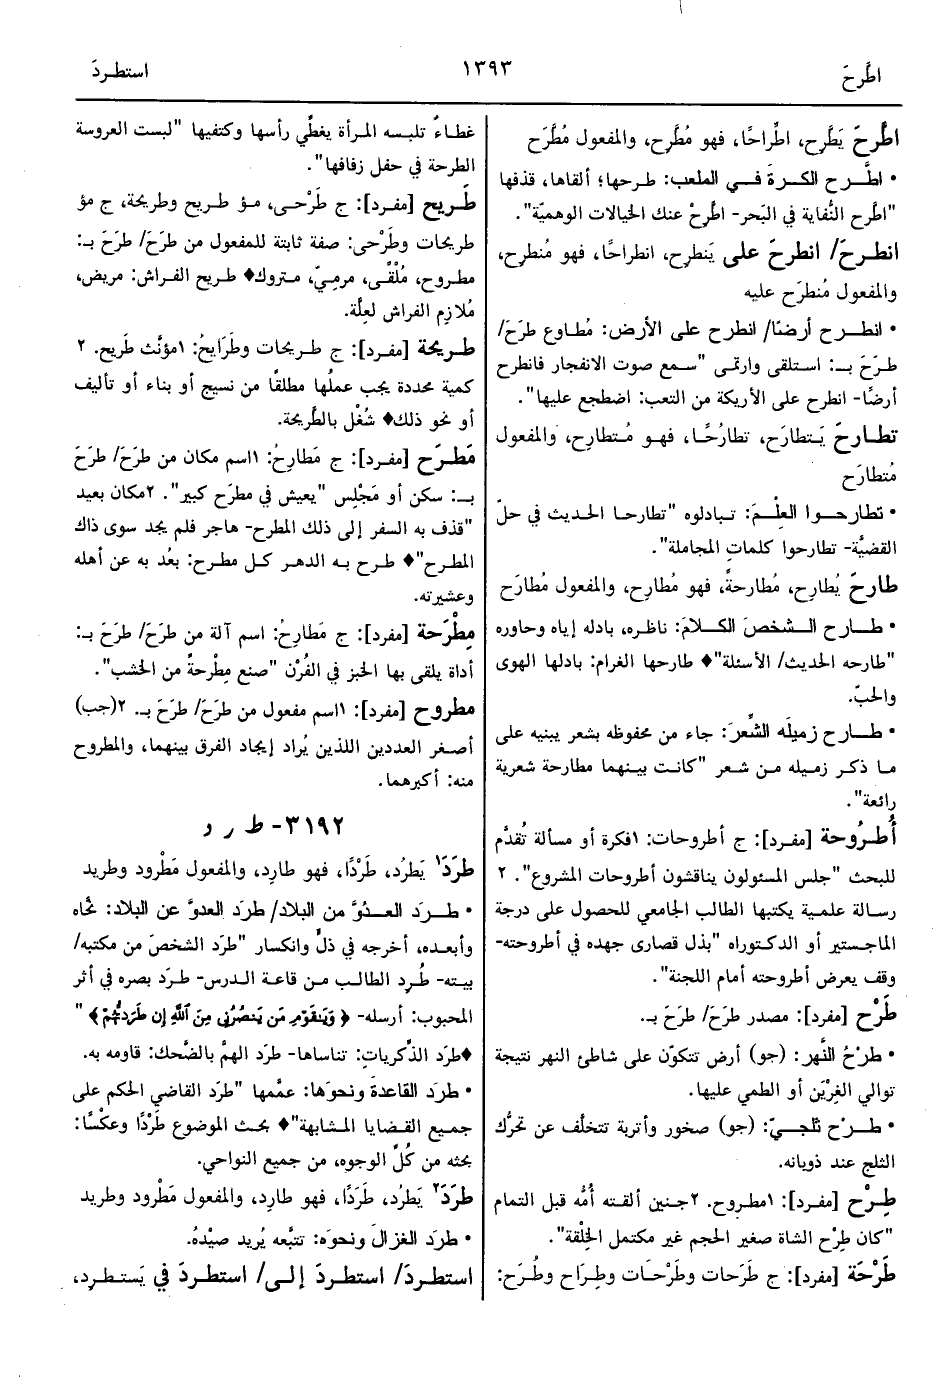 اطَّرحَ
١٣٩٣
استطردَ
اطَّرحَ يَطَّرِح، اطِّراحًا، فهو مُطَّرِح، والمفعول مُطَّرَح
• اطَّرح الكرةَ في الملعب: طرحها؛ ألقاها، قذفها
"اطَّرح النُّفاية في البَحر- اطَّرحْ عنك الخيالات الوهميّة".
انطرحَ/ انطرحَ على يَنطرِح، انطراحًا، فهو مُنطرِح،
والمفعول مُنطرَح عليه
• انطرح أرضًا/ انطرح على الأرض: مُطاوع طرَحَ/
طرَحَ بـ: استلقى وارتمى "سمع صوت الانفجار فانطرح
أرضًا- انطرح على الأريكة من التعب: اضطجع عليها".
تطارحَ يَتطارَح، تطارُحًا، فهو مُتطارِح، والمفعول
مُتطارَح
• تطارحوا العِلْمَ: تبادلوه "تطارحا الحديث في حلّ
القضيَّة- تطارحوا كلماتِ المجاملة".
طارحَ يُطارح، مُطارحةً، فهو مُطارِح، والمفعول مُطارَح
• طارح الشخصَ الكلامَ: ناظره، بادله إياه وحاوره
"طارحه الحديث/ الأسئلة"♦ طارحها الغرام: بادلها الهوى
والحبّ.
• طارح زميلَه الشِّعرَ: جاء من محفوظه بشعر يبنيه على
ما ذكر زميله من شعر "كانت بينهما مطارحة شعرية
رائعة".
أُطروحة [مفرد]: ج أطروحات: ١فكرة أو مسألة تُقدَّم
للبحث "جلس المسئولون يناقشون أطروحات المشروع". ٢
رسالة علمية يكتبها الطالب الجامعي للحصول على درجة
الماجستير أو الدكتوراه "بذل قصارى جهده في أطروحته-
وقف يعرض أطروحته أمام اللجنة".
طَرْح [مفرد]: مصدر طرَحَ/ طرَحَ بـ.
• طرْحُ النَّهر: (جو) أرض تتكوّن على شاطئ النهر نتيجة
توالي الغِرْيَن أو الطمي عليها.
• طرْح ثلجيّ: (جو) صخور وأتربة تتخلَّف عن تحرُّك
الثلج عند ذوبانه.
طِرْح [مفرد]: ١مطروح. ٢جنين ألقته أمُّه قبل التمام
"كان طِرْح الشاة صغير الحجم غير مكتمل الخِلْقة".
طَرْحَة [مفرد]: ج طَرَحات وطَرْحَات وطِرَاح وطُرَح:
غطاءٌ تلبسه المرأة يغطِّي رأسها وكتفيها "لبست العروسة
الطرحة في حفل زفافها".
طَريح [مفرد]: ج طَرْحى، مؤ طريح وطريحة، ج مؤ
طريحات وطَرْحى: صفة ثابتة للمفعول من طرَحَ/ طرَحَ بـ:
مطروح، مُلْقًى، مرميّ، متروك♦ طريح الفراش: مريض،
مُلازِم الفراش لعِلَّة.
طريحة [مفرد]: ج طريحات وطَرَايحُ: ١مؤنَّث طَريح. ٢
كمية محددة يجب عملُها مطلقًا من نسيج أو بناء أو تأليف
أو نحو ذلك♦ شُغْل بالطَّريحة.
مَطْرَح [مفرد]: ج مَطارِحُ: ١اسم مكان من طرَحَ/ طرَحَ
بـ: سكن أو مَجْلِس "يعيش في مطرَح كبير". ٢مكان بعيد
"قذف به السفر إلى ذلك المطرح- هاجر فلم يجد سوى ذاك
المطرح"♦ طرح به الدهر كل مطرح: بعُد به عن أهله
وعشيرته.
مِطْرَحة [مفرد]: ج مَطارِحُ: اسم آلة من طرَحَ/ طرَحَ بـ:
أداة يلقى بها الخبز في الفُرْن "صنع مِطْرحةً من الخشب".
مطروح [مفرد]: ١اسم مفعول من طرَحَ/ طرَحَ بـ. ٢(جب)
أصغر العددين اللذين يُراد إيجاد الفرق بينهما، والمطروح
منه: أكبرهما.
٣١٩٢- ط ر د
طرَدَ١ يَطرُد، طَرْدًا، فهو طارِد، والمفعول مَطْرود وطريد
• طرَد العدُوَّ من البلاد/ طرَد العدوَّ عن البلاد: نحَّاه
وأبعده، أخرجه في ذلٍّ وانكسار "طرَد الشخصَ من مكتبه/
بيته- طُرِد الطالب من قاعة الدرس- طرَد بصره في أثر
المحبوب: أرسله- ﴿وَيَـٰقَوْمِ مَن يَنصُرُنِى مِنَ ٱللَّهِ إِن طَرَدتُّهُمْ﴾"
♦طرَد الذِّكريات: تناساها- طرَد الهمَّ بالضَّحك: قاومه به.
• طرَد القاعدةَ ونحوَها: عمَّمها "طرَد القاضي الحكم على
جميع القضايا المشابهة"♦ بحث الموضوع طَرْدًا وعكْسًا:
بحثه من كُلّ الوجوه، من جميع النواحي.
طرَدَ٢ يَطرُد، طَرَدًا، فهو طارِد، والمفعول مَطْرود وطريد
• طرَد الغزالَ ونحوَه: تتبَّعه يُريد صيْدَهُ.
استطردَ/ استطردَ إلى/ استطردَ في يَستطرِد،